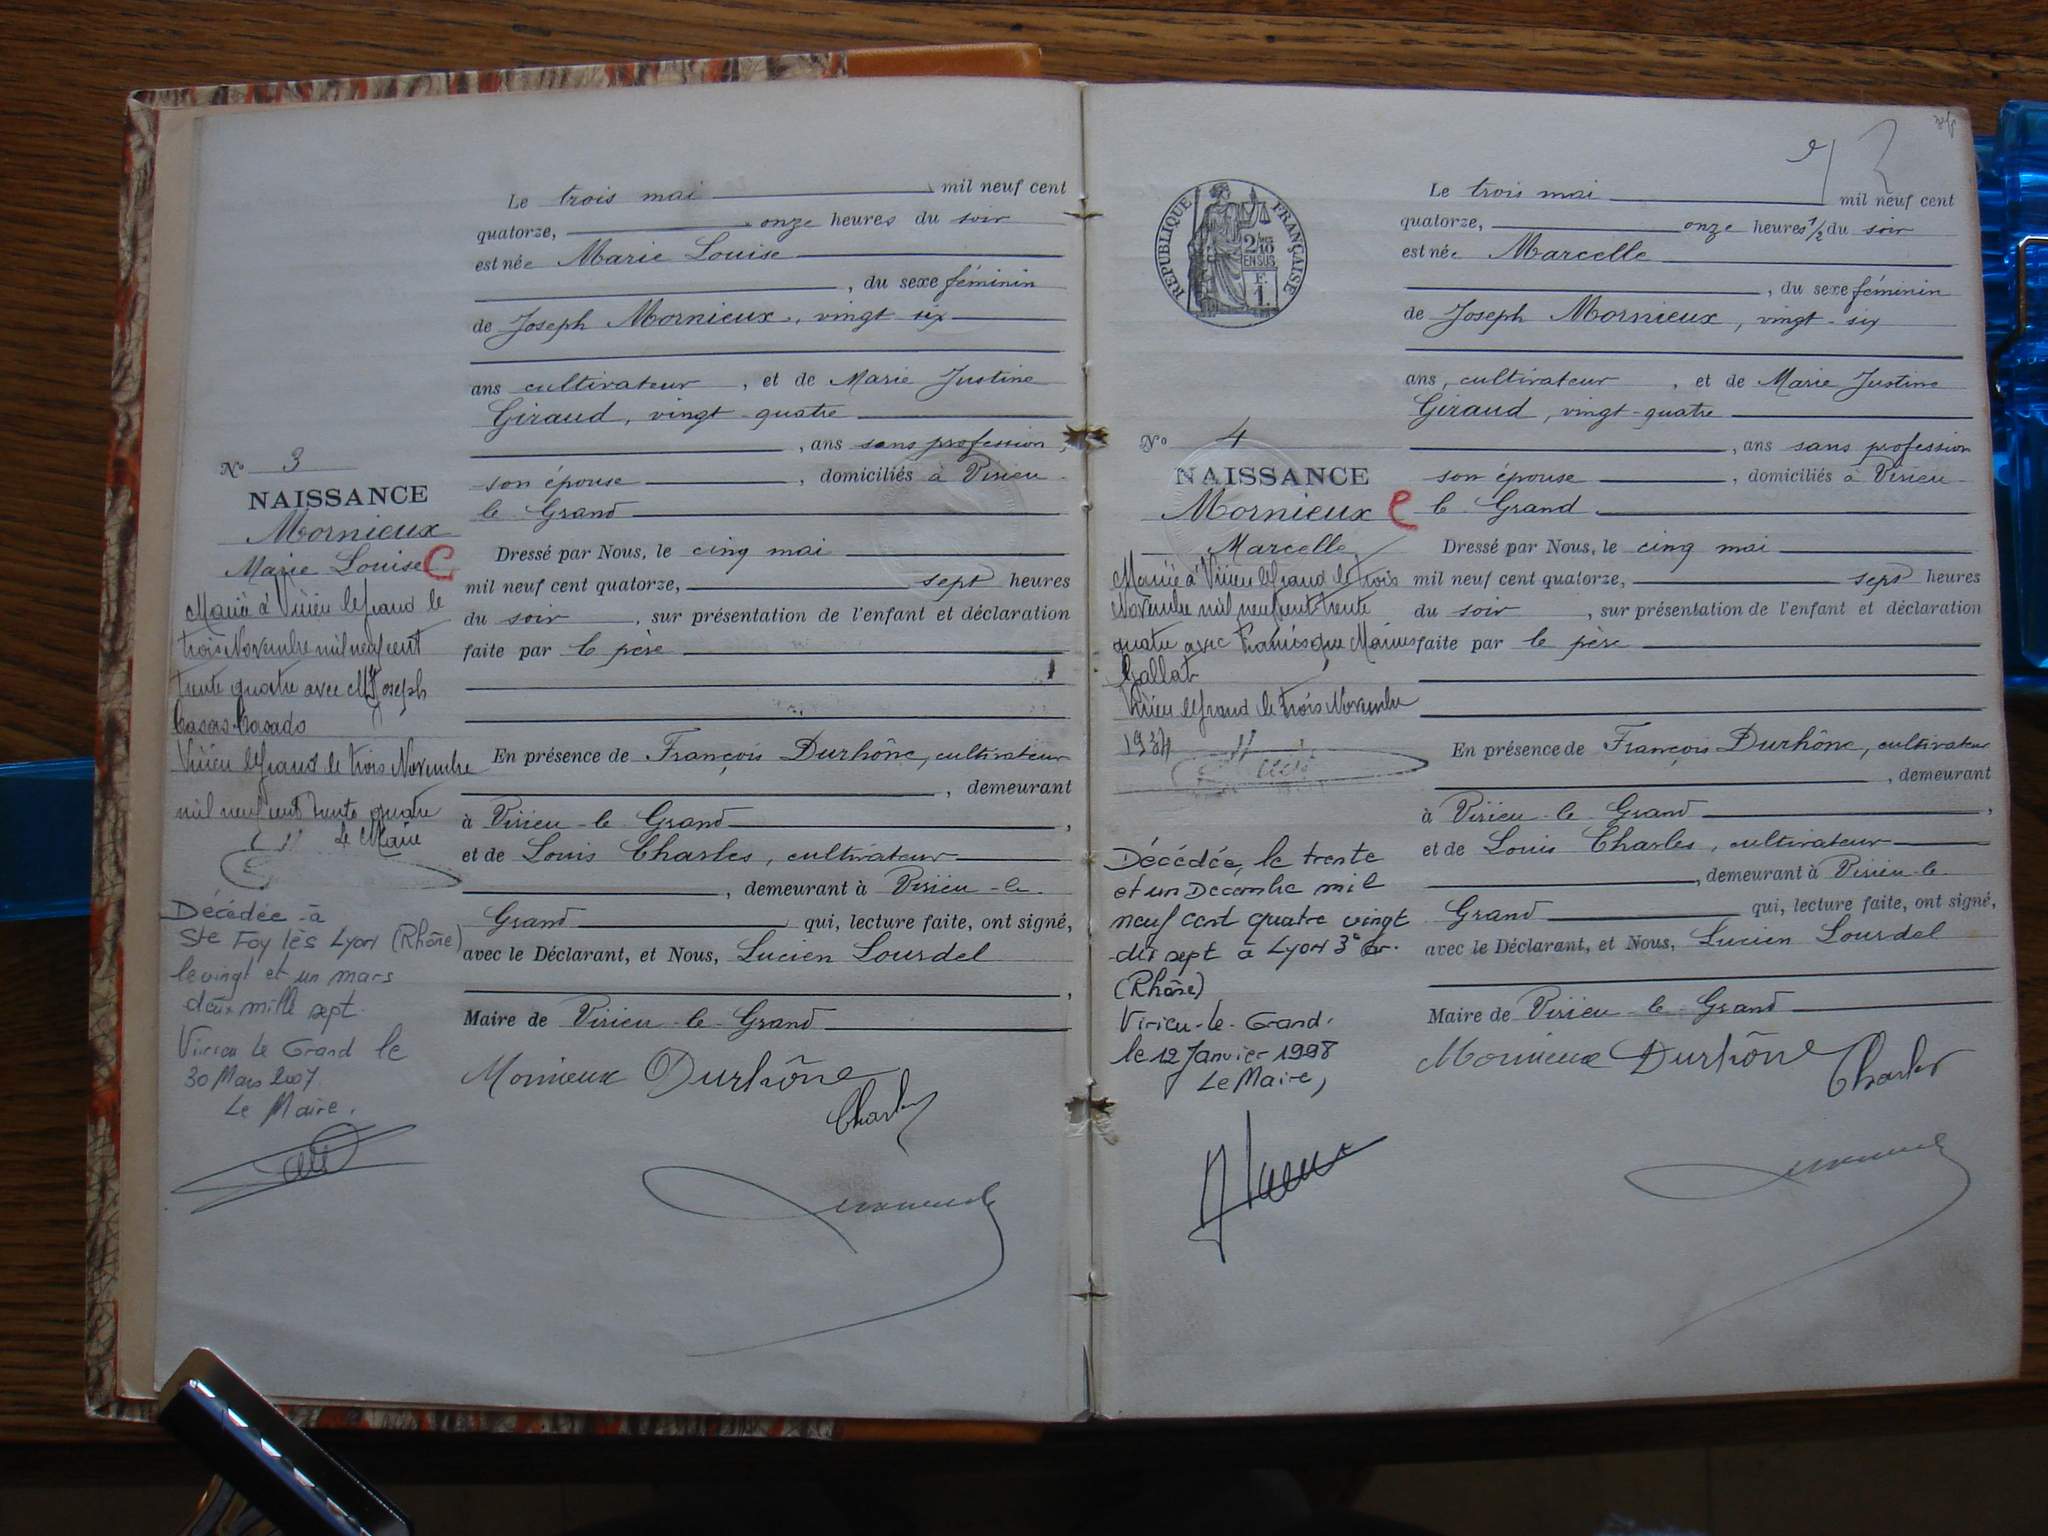 Le trois mai mil neuf cent
quatorze, onze heures du soir
est née Marie Louise
, du sexe féminin
de Joseph Mornieux, vingt six
ans cultivateur, et de Marie Justine
Giraud, vingt-quatre
, ans sans profession,
son épouse, domiciliés à Virieu-
le Grand
Dressé par Nous, le cinq mai
mil neuf cent quatorze, sept heures
du soir, sur présentation de l'enfant et déclaration
faite par le père
En présence de François Durhône, cultivateur
, demeurant
à Virieu-le Grand,
et de Louis Charles, cultivateur
, demeurant à Virieu-le-
Grand qui, lecture faite, ont signé,
avec le Déclarant, et Nous, Lucien Lourdel
,
Maire de Virieu-le-Grand
Mornieux Durhône
Charles
No 3
NAISSANCE
Mornieux
Marie Louise C
Mariée à Virieu le Grand le
trois Novembre mil neuf cent
trente quatre avec Joseph
Casas-Casado
Virieu le Grand le trois Novembre
mil neuf cent trente quatre
Le Maire
Décédée à
Ste Foy lès Lyon (Rhône)
le vingt et un mars
deux mille sept.
Virieu le Grand le
30 Mars 2007
Le Maire,
RÉPUBLIQUE FRANÇAISE
2/10
EN SUS
F.
1.
Le trois mai mil neuf cent
quatorze, onze heures 1/2 du soir
est née Marcelle
, du sexe féminin
de Joseph Mornieux, vingt-six
ans, cultivateur, et de Marie Justine
Giraud, vingt-quatre
, ans sans profession
son épouse, domiciliés à Virieu-
le Grand
Dressé par Nous, le cinq mai
mil neuf cent quatorze, sept heures
du soir, sur présentation de l'enfant et déclaration
faite par le père
En présence de François Durhône, cultivateur
, demeurant
à Virieu-le-Grand,
et de Louis Charles, cultivateur
, demeurant à Virieu-le-
Grand qui, lecture faite, ont signé,
avec le Déclarant, et Nous, Lucien Lourdel
Maire de Virieu-le-Grand
Mornieux Durhône
Charles
No 4
NAISSANCE
Mornieux C
Marcelle
Mariée à Virieu le Grand le trois
Novembre mil neuf cent trente
quatre avec Francisque Marius
Gallat
Virieu le Grand le trois Novembre
1934
Décédée, le trente
et un Decembre mil
neuf cent quatre vingt
dix sept à Lyon 3e ar.
(Rhône)
Virieu-le-Grand.
le 12 Janvier 1998
Le Maire,